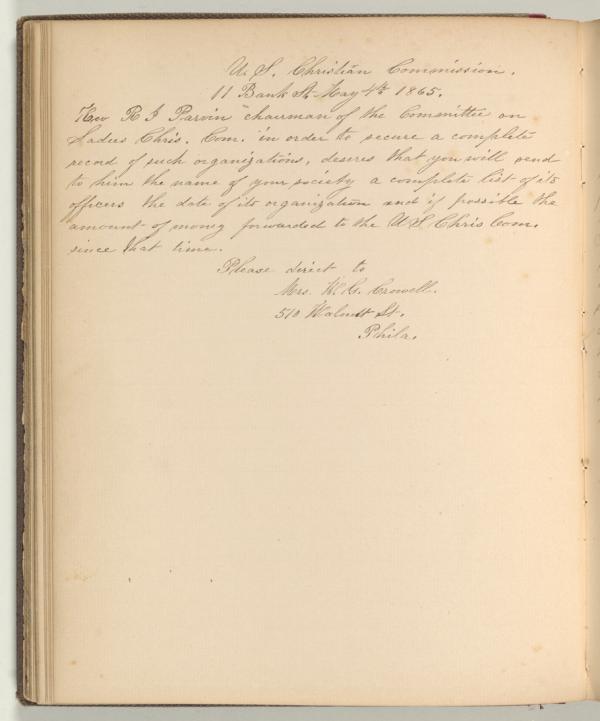 U. S. Christian Commission.
11 Bank St. May 4th 1865.
Rev R J Parvin "chairman of the Committee on
Ladies Chris. Com." in order to secure a complete
record of such organizations, desires that you will send
to him the name of your society a complete list of its
officers the date of its organization and if possible the
amount of money forwarded to the U S Chris Com.
since that time.
Please direct to
Mrs. W. G. Crowell.
510 Walnut St.
Phila.